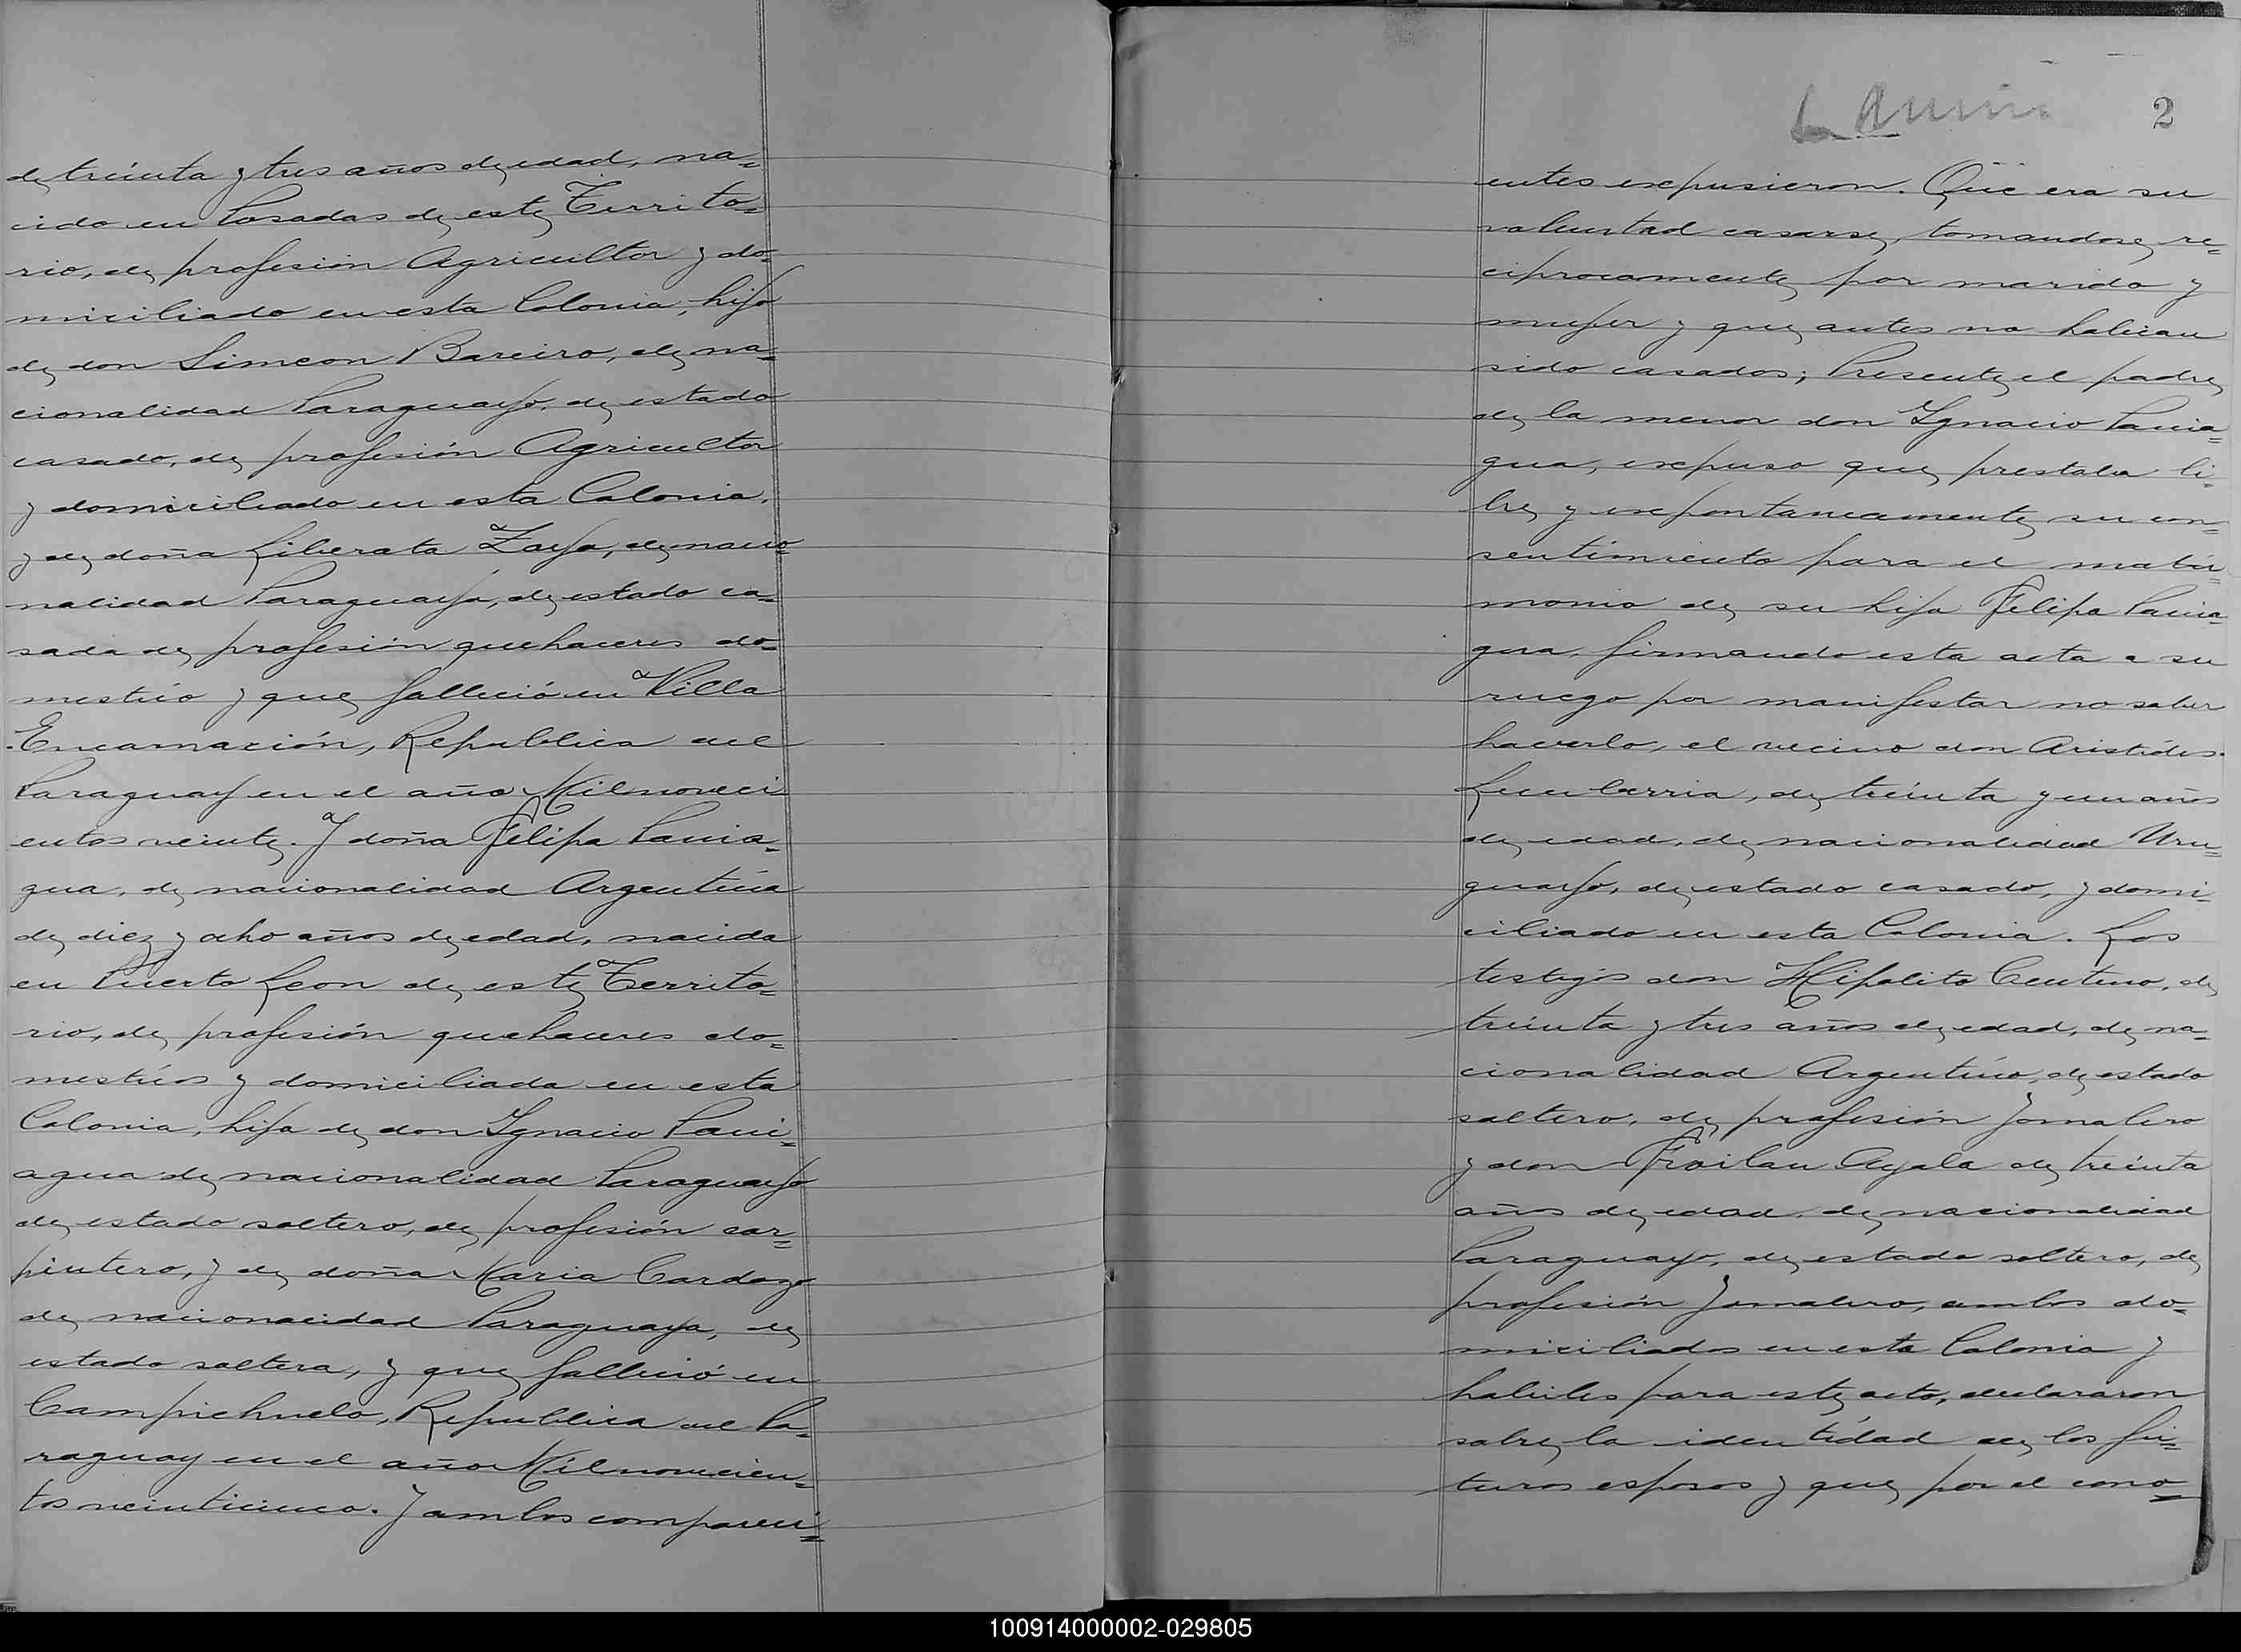 de treinta y tres años de edad, na=
cido en Posadas de este Territo=
rio, de profesión Agricultor y do=
miciliado en esta Colonia, hijo
de don Simeon Bareiro, de na=
cionalidad Paraguayo, de estado
casado, de profesión Agricultor
y domiciliado en esta Colonia,
y de doña Liberata Zaya, de nacio=
nalidad Paraguaya, de estado ca=
sada de profesión quehaceres do=
mestico y que falleció en Villa
Encarnación, Republica del
Paraguay en el año Milnoveci
entos veinte. Y doña Felipa Pania=
gua, de nacionalidad Argentina
de diez y ocho años de edad, nacida
en Puerto Leon de este Territo=
rio, de profesión quehaceres do=
mesticos y domiciliada en esta
Colonia, hija de don Ignacio Pani=
agua de nacionalidad Paraguayo
de estado soltero, de profesión car=
pintero, y de doña Maria Cardozo
de nacionalidad Paraguaya, de
estado soltera, y que falleció en
Campichuelo, Republica del Pa=
raguay en el año Milnovecien=
tos veinticinco. Y ambos compareci=
2
entes expusieron. Que era su
voluntad casarse, tomandose re=
ciprocamente por marido y
mujer y que antes no habian
sido casados; Presente el padre
de la menor don Ignacio Pania=
gua, expuso que prestaba li=
bre y expontaneamente su con=
sentimiento para el matri=
monio de su hija Felipa Pania=
gua, firmando esta acta a su
ruego por manifestar no saber
hacerlo, el vecino don Aristides
de treinta y un años
de edad, de nacionalidad Uru=
guayo, de estado casado, y domi=
ciliado en esta Colonia. Los
testigos don Hipolito Centeno, de
treinta y tres años de edad, de na=
cionalidad Argentino, de estado
soltero, de profesión Jornalero
y don Froilan Ayala de treinta
años de edad, de nacionalidad
Paraguayo, de estado soltero, de
profesión Jornalero, ambos do=
miciliados en esta Colonia y
habiles para este acto, declararon
sobre la identidad de los fu=
turos esposos y que por el cono=
100914000002-029805